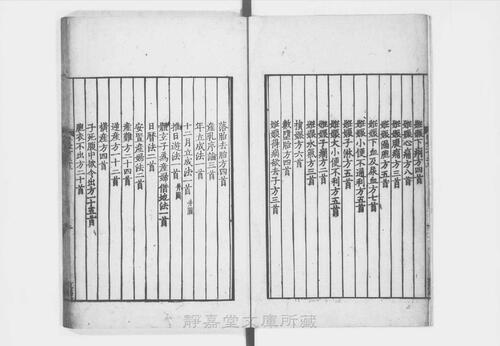 妊娠下痢方四首
妊娠心痛方八首
妊娠腹痛方三首
妊娠傷胞方五首
妊娠下血及尿血方七首
妊娠小便不通利方五首
妊娠子淋方五首
妊娠大小便不利方五首
妊娠子癇方二首
妊娠水氣方三首
損娠方六首
數墮胎方四首
妊娠得病欲去子方三首
落胎去胎方四首
産乳序論三首
年立成法一首
十二月立成法一首 并圖
推日遊法一首 并圖
體玄子為産婦借地法一首
日曆法二首
安置産婦法二首
産難方二十四首
逆産方二十二首
横産方四首
子死腹中欲令出方一十五首
胞衣不出方二十首
靜嘉堂文庫所藏